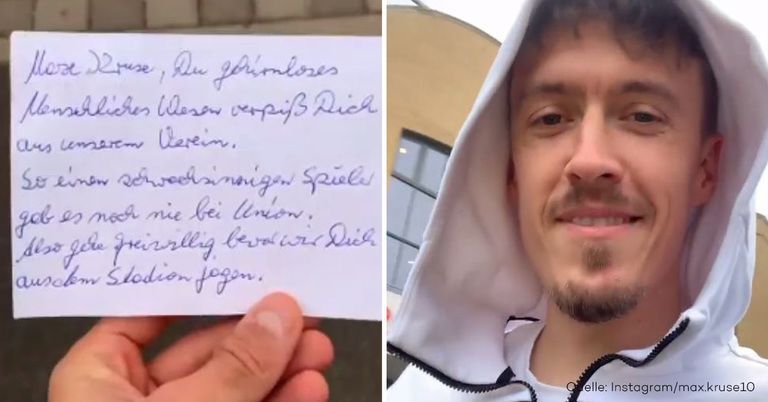 Maxe Kruse, Du gehirnloses
Menschliches Wesen verpiß Dich
aus unserem Verein.
So einen schwachsinnigen Spieler
gab es noch nie bei Union.
Also gehe freiwillig bevor wir Dich
aus dem Stadion jagen.
Quelle: Instagram/max.kruse10